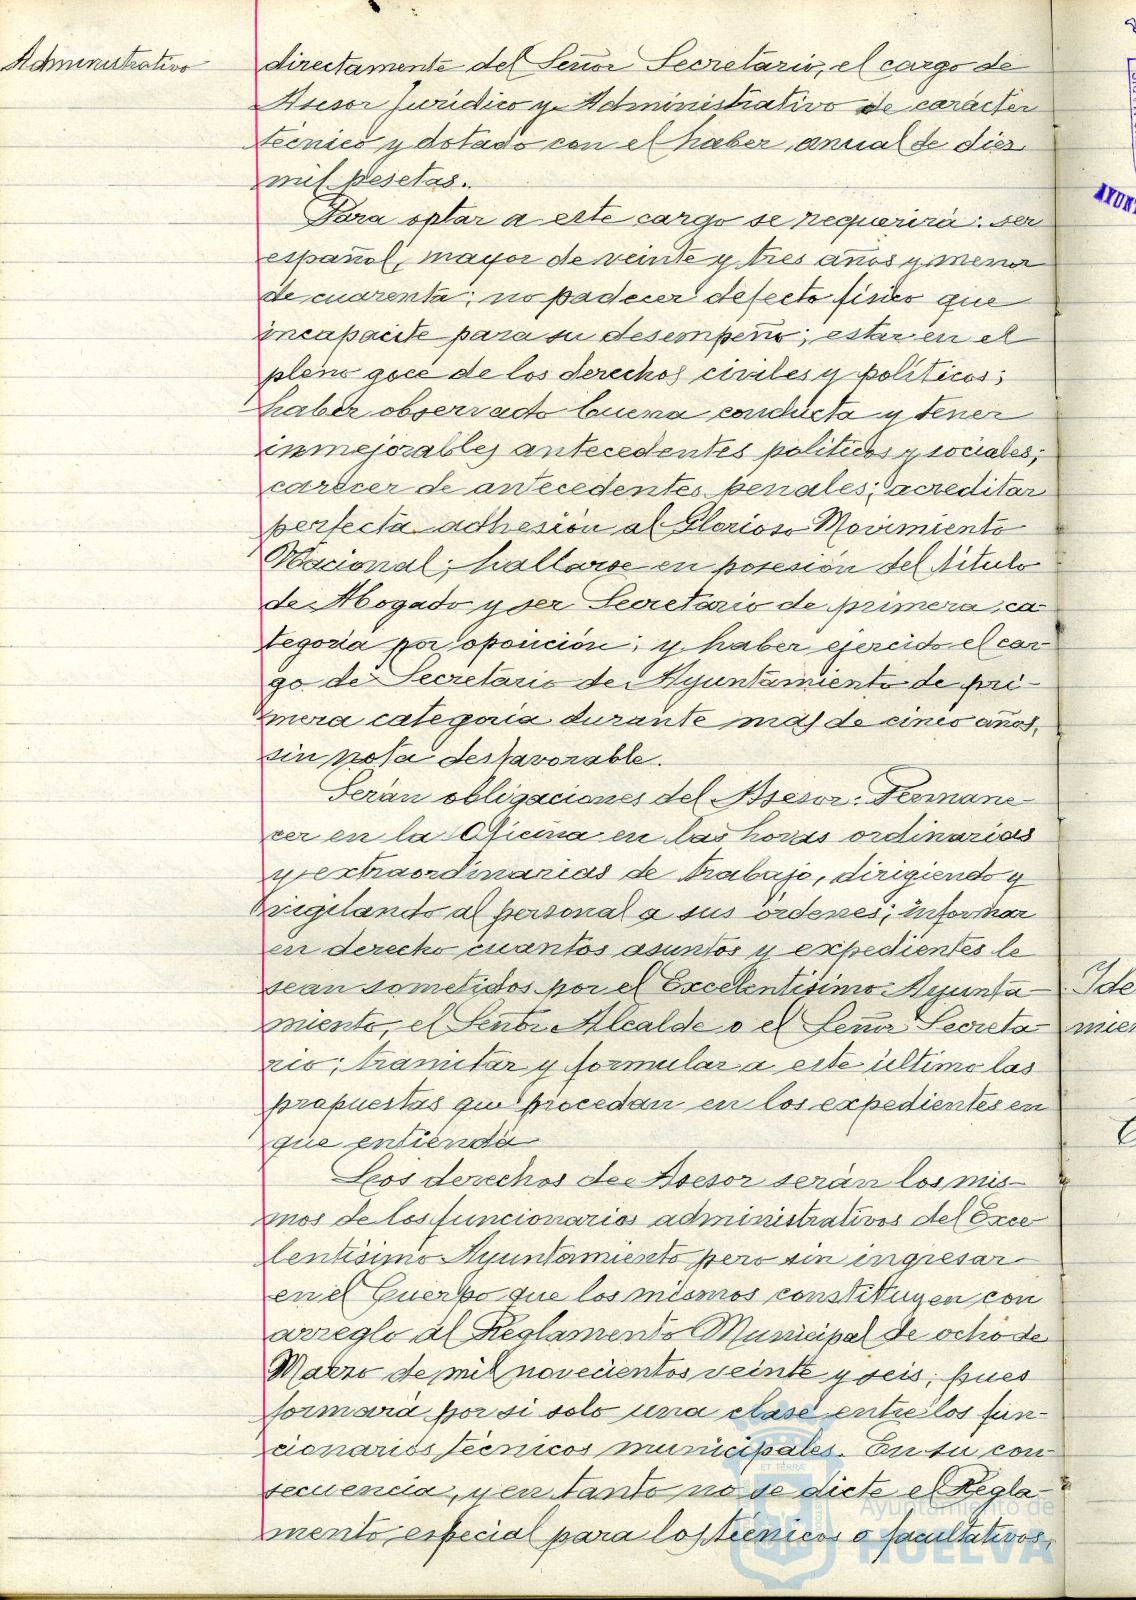 Administrativo
directamente del Señor Secretario, el cargo de
Asesor Jurídico y Administrativo de carácter
técnico y dotado con el haber anual de diez
mil pesetas.
Para optar a este cargo se requerirá: ser
español, mayor de veinte y tres años y menor
de cuarenta; no padecer defecto físico que
incapacite para su desempeño; estar en el
pleno goce de los derechos civiles y políticos;
haber observado buena conducta y tener
inmejorables antecedentes políticos y sociales;
carecer de antecedentes penales; acreditar
perfecta adhesión al Glorioso Movimiento
Nacional; hallarse en posesión del título
de Abogado y ser Secretario de primera ca-
tegoría por oposición; y haber ejercido el car-
go de Secretario de Ayuntamiento de pri-
mera categoría durante mas de cinco años,
sin nota desfavorable.
Serán obligaciones del Asesor: Permane-
cer en la Oficina en las horas ordinarias
y extraordinarias de trabajo, dirigiendo y
vigilando al personal a sus órdenes; informar
en derecho cuantos asuntos y expedientes le
sean sometidos por el Excelentísimo Ayunta-
miento, el Señor Alcalde o el Señor Secreta-
rio; tramitar y formular a este último las
propuestas que procedan en los expedientes en
que entienda
Los derechos de Asesor serán los mis-
mos de los funcionarios administrativos del Exce-
lentísimo Ayuntamiento pero sin ingresar
en el Cuerpo que los mismos constituyen con
arreglo al Reglamento Municipal de ocho de
Marzo de mil novecientos veinte y seis, pues
formará por si solo una clase entre los fun-
cionarios técnicos municipales. En su con-
secuencia, y en tanto no se dicte el Regla-
mento especial para los técnicos o facultativos,
AYUNT
Ide
mien
ET TERRA
Ayuntamiento de
HUELVA